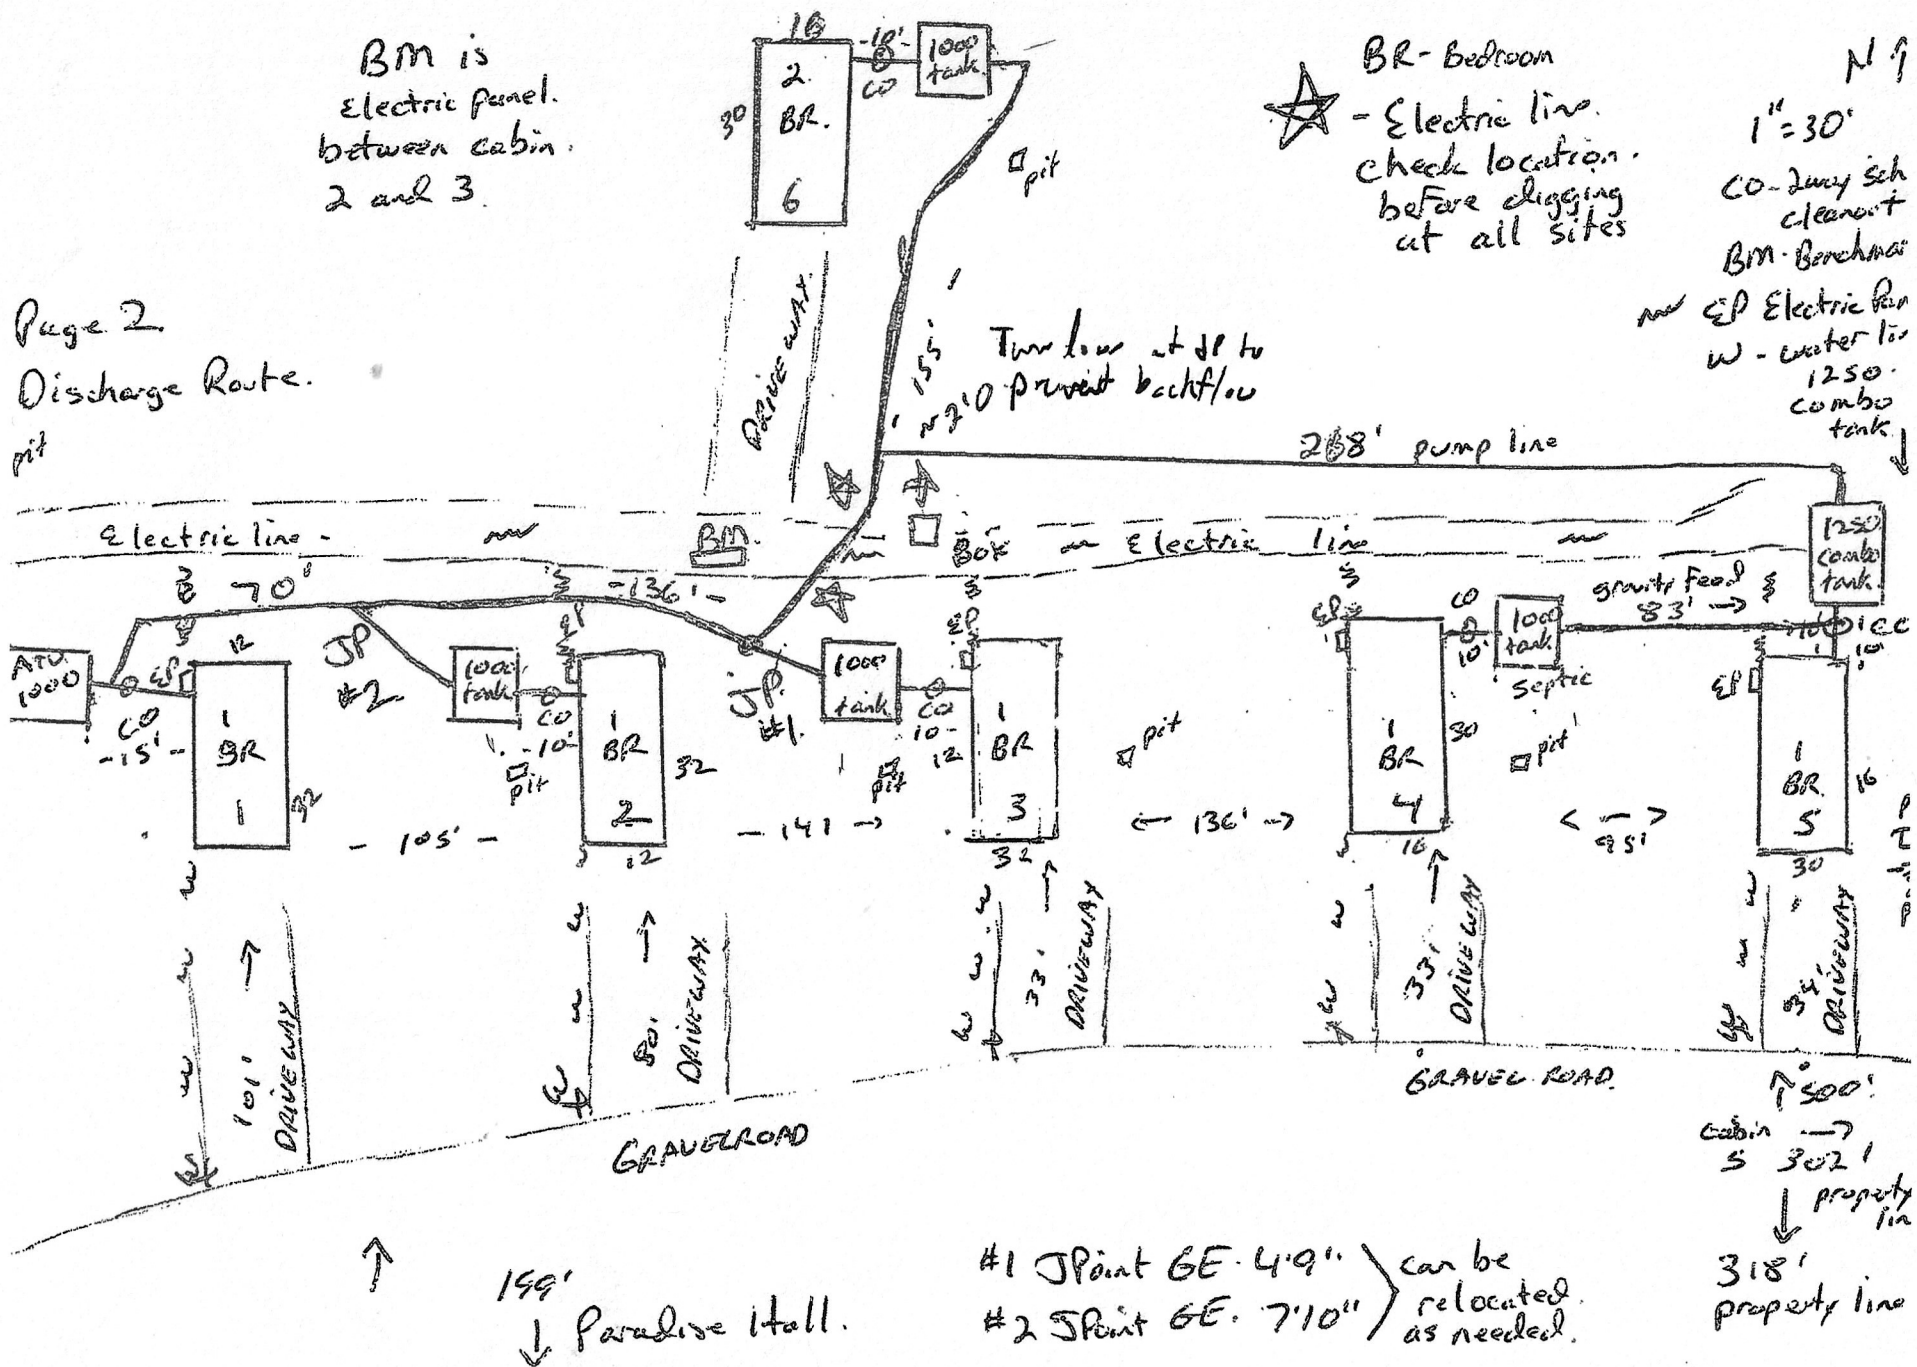 BM is
Electric panel.
between cabin.
2 and 3.
16
30
2
BR.
6
-10'-
CO
1000
tank.
pit
BR- Bedroom
- Electric line.
check location.
before digging
at all sites
N
1"=30'
CO-2way sch
cleanout
BM-Benchmar
EP Electric Pan
W - water lin
1250.
combo
tank.
Page 2.
Discharge Route.
pit
DRIVEWAY.
155'
prevent backflow
268' pump line
Electric line -
BM.
Box
Electric line
1250
combo
tank.
70'
-136'-
gravity Feed
83' →
ATU.
1000
CO
-15'-
EP
12
1
BR
1
32
JP
#2
1000
tank
CO
-10'-
pit
EP
1
BR
2
32
12
JP.
#1.
1000
tank
CO
10-
12
pit
EP
1
BR
3
32
pit
EP
1
BR
4
30
16
CO
10'
1000
tank
septic
pit
EP
1
BR.
5
16
30
- 105' -
- 141 →
← 136' →
< 95' >
W
W
W
W
101' →
DRIVEWAY
W
W
W
W
50' →
DRIVEWAY
W
W
W
W
33' →
DRIVEWAY
W
W
W
33' →
DRIVEWAY
W
W
W
W
34'
DRIVEWAY
GRAVEL ROAD
GRAVEL ROAD.
↑ 500'
cabin →
5 302'
property
lin
318'
property line
199'
↓ Paradise Hall.
#1 JPoint GE. 4'9"
#2 JPoint GE. 7'10"
can be
relocated.
as needed.